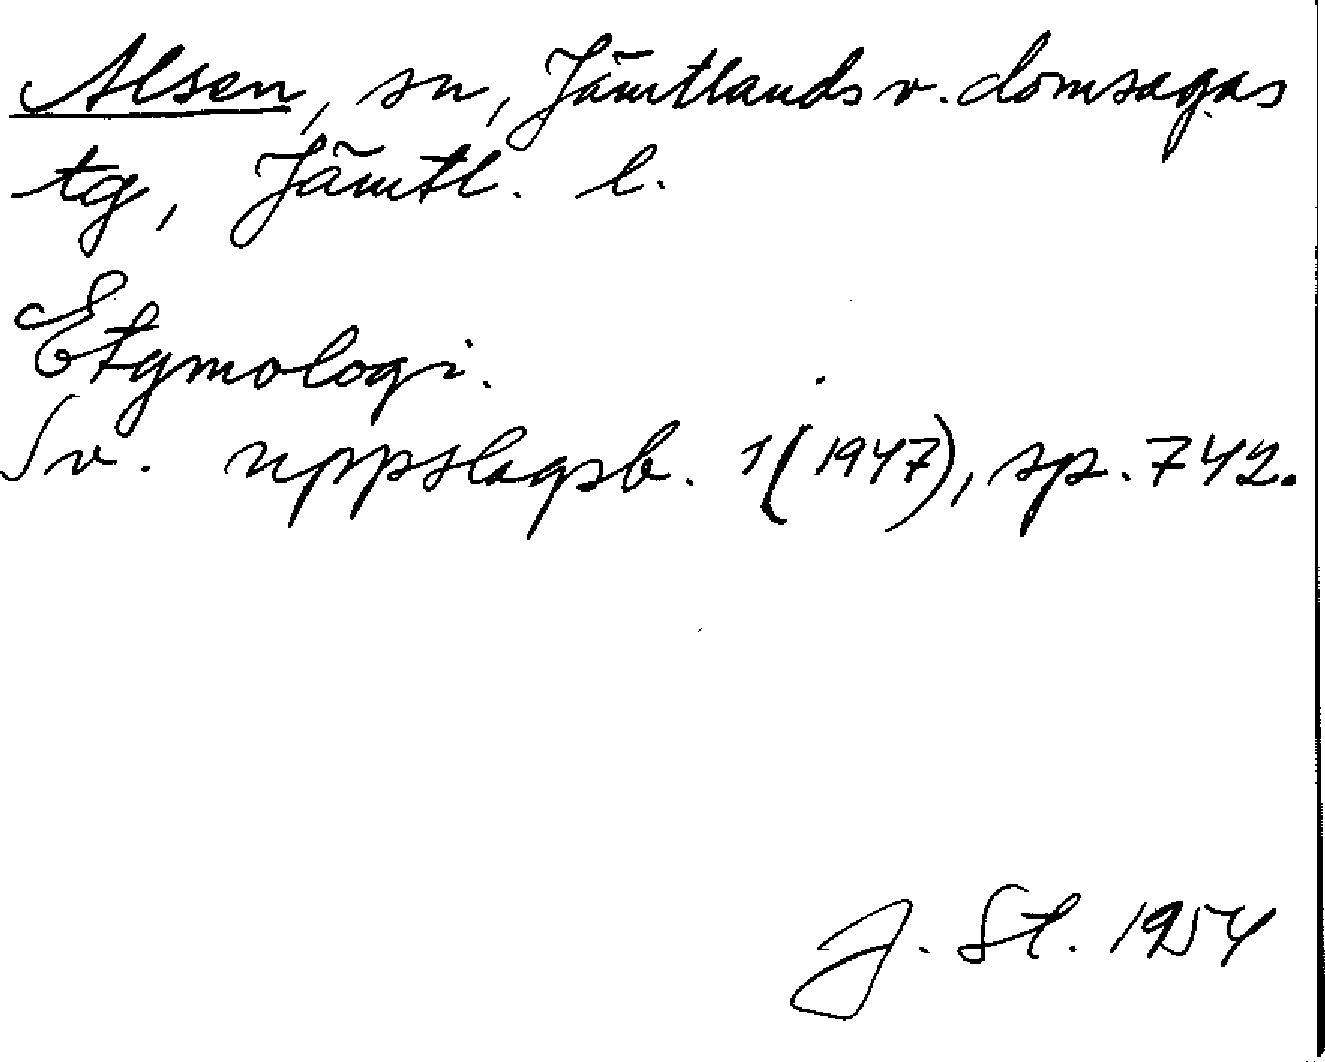 Alsen, sn, Jämtlands v. domsagas
tg, Jämtl. l.
Etymologi.
Sv. uppslagsb. 1(1947), sp. 742.
J. St. 1954